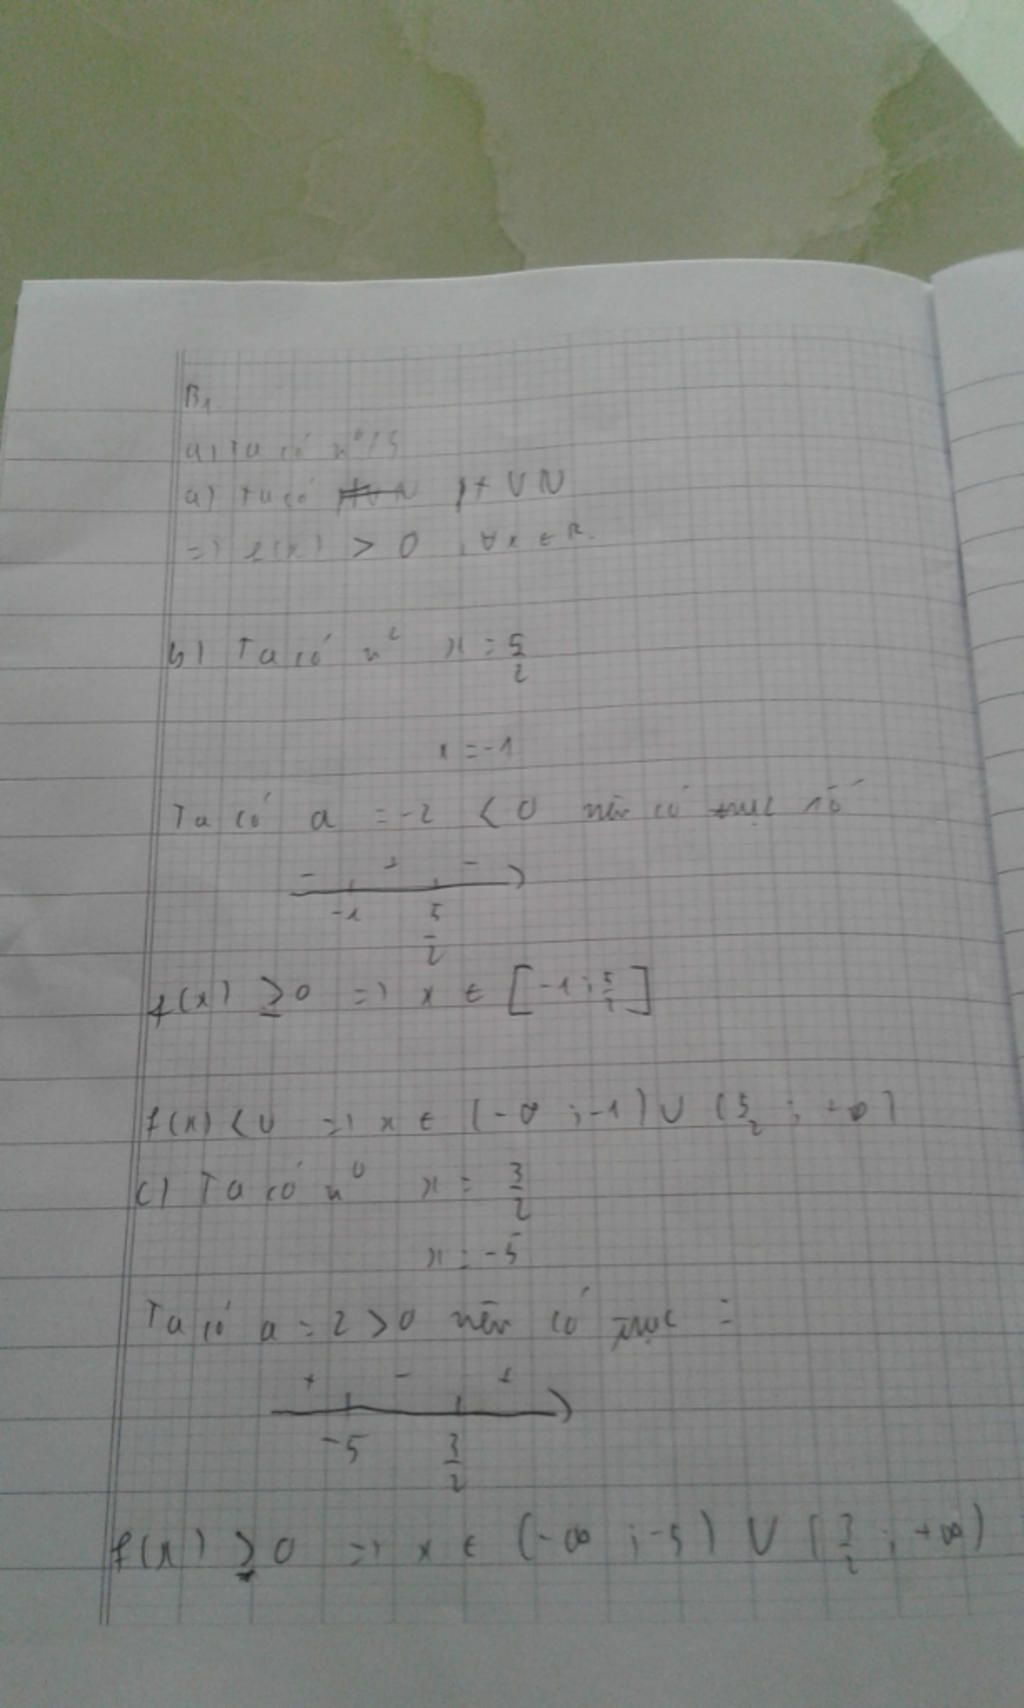 B1.
a) Ta có n⁰
a) Ta có pt VN
=) f(x) > 0 , ∀x ∈ R.
b) Ta có n⁰ x = 5/2
x = -1
Ta có a = -2 < 0 nên có trục số
- + -
-1 5/2
f(x) ≥ 0 =) x ∈ [-1 ; 5/2]
f(x) < 0 =) x ∈ (-∞ ; -1) ∪ (5/2 ; +∞)
c) Ta có n⁰ x = 3/2
x = -5
Ta có a = 2 > 0 nên có trục :
+ - +
-5 3/2
f(x) ≥ 0 =) x ∈ (-∞ ; -5) ∪ (3/2 ; +∞)